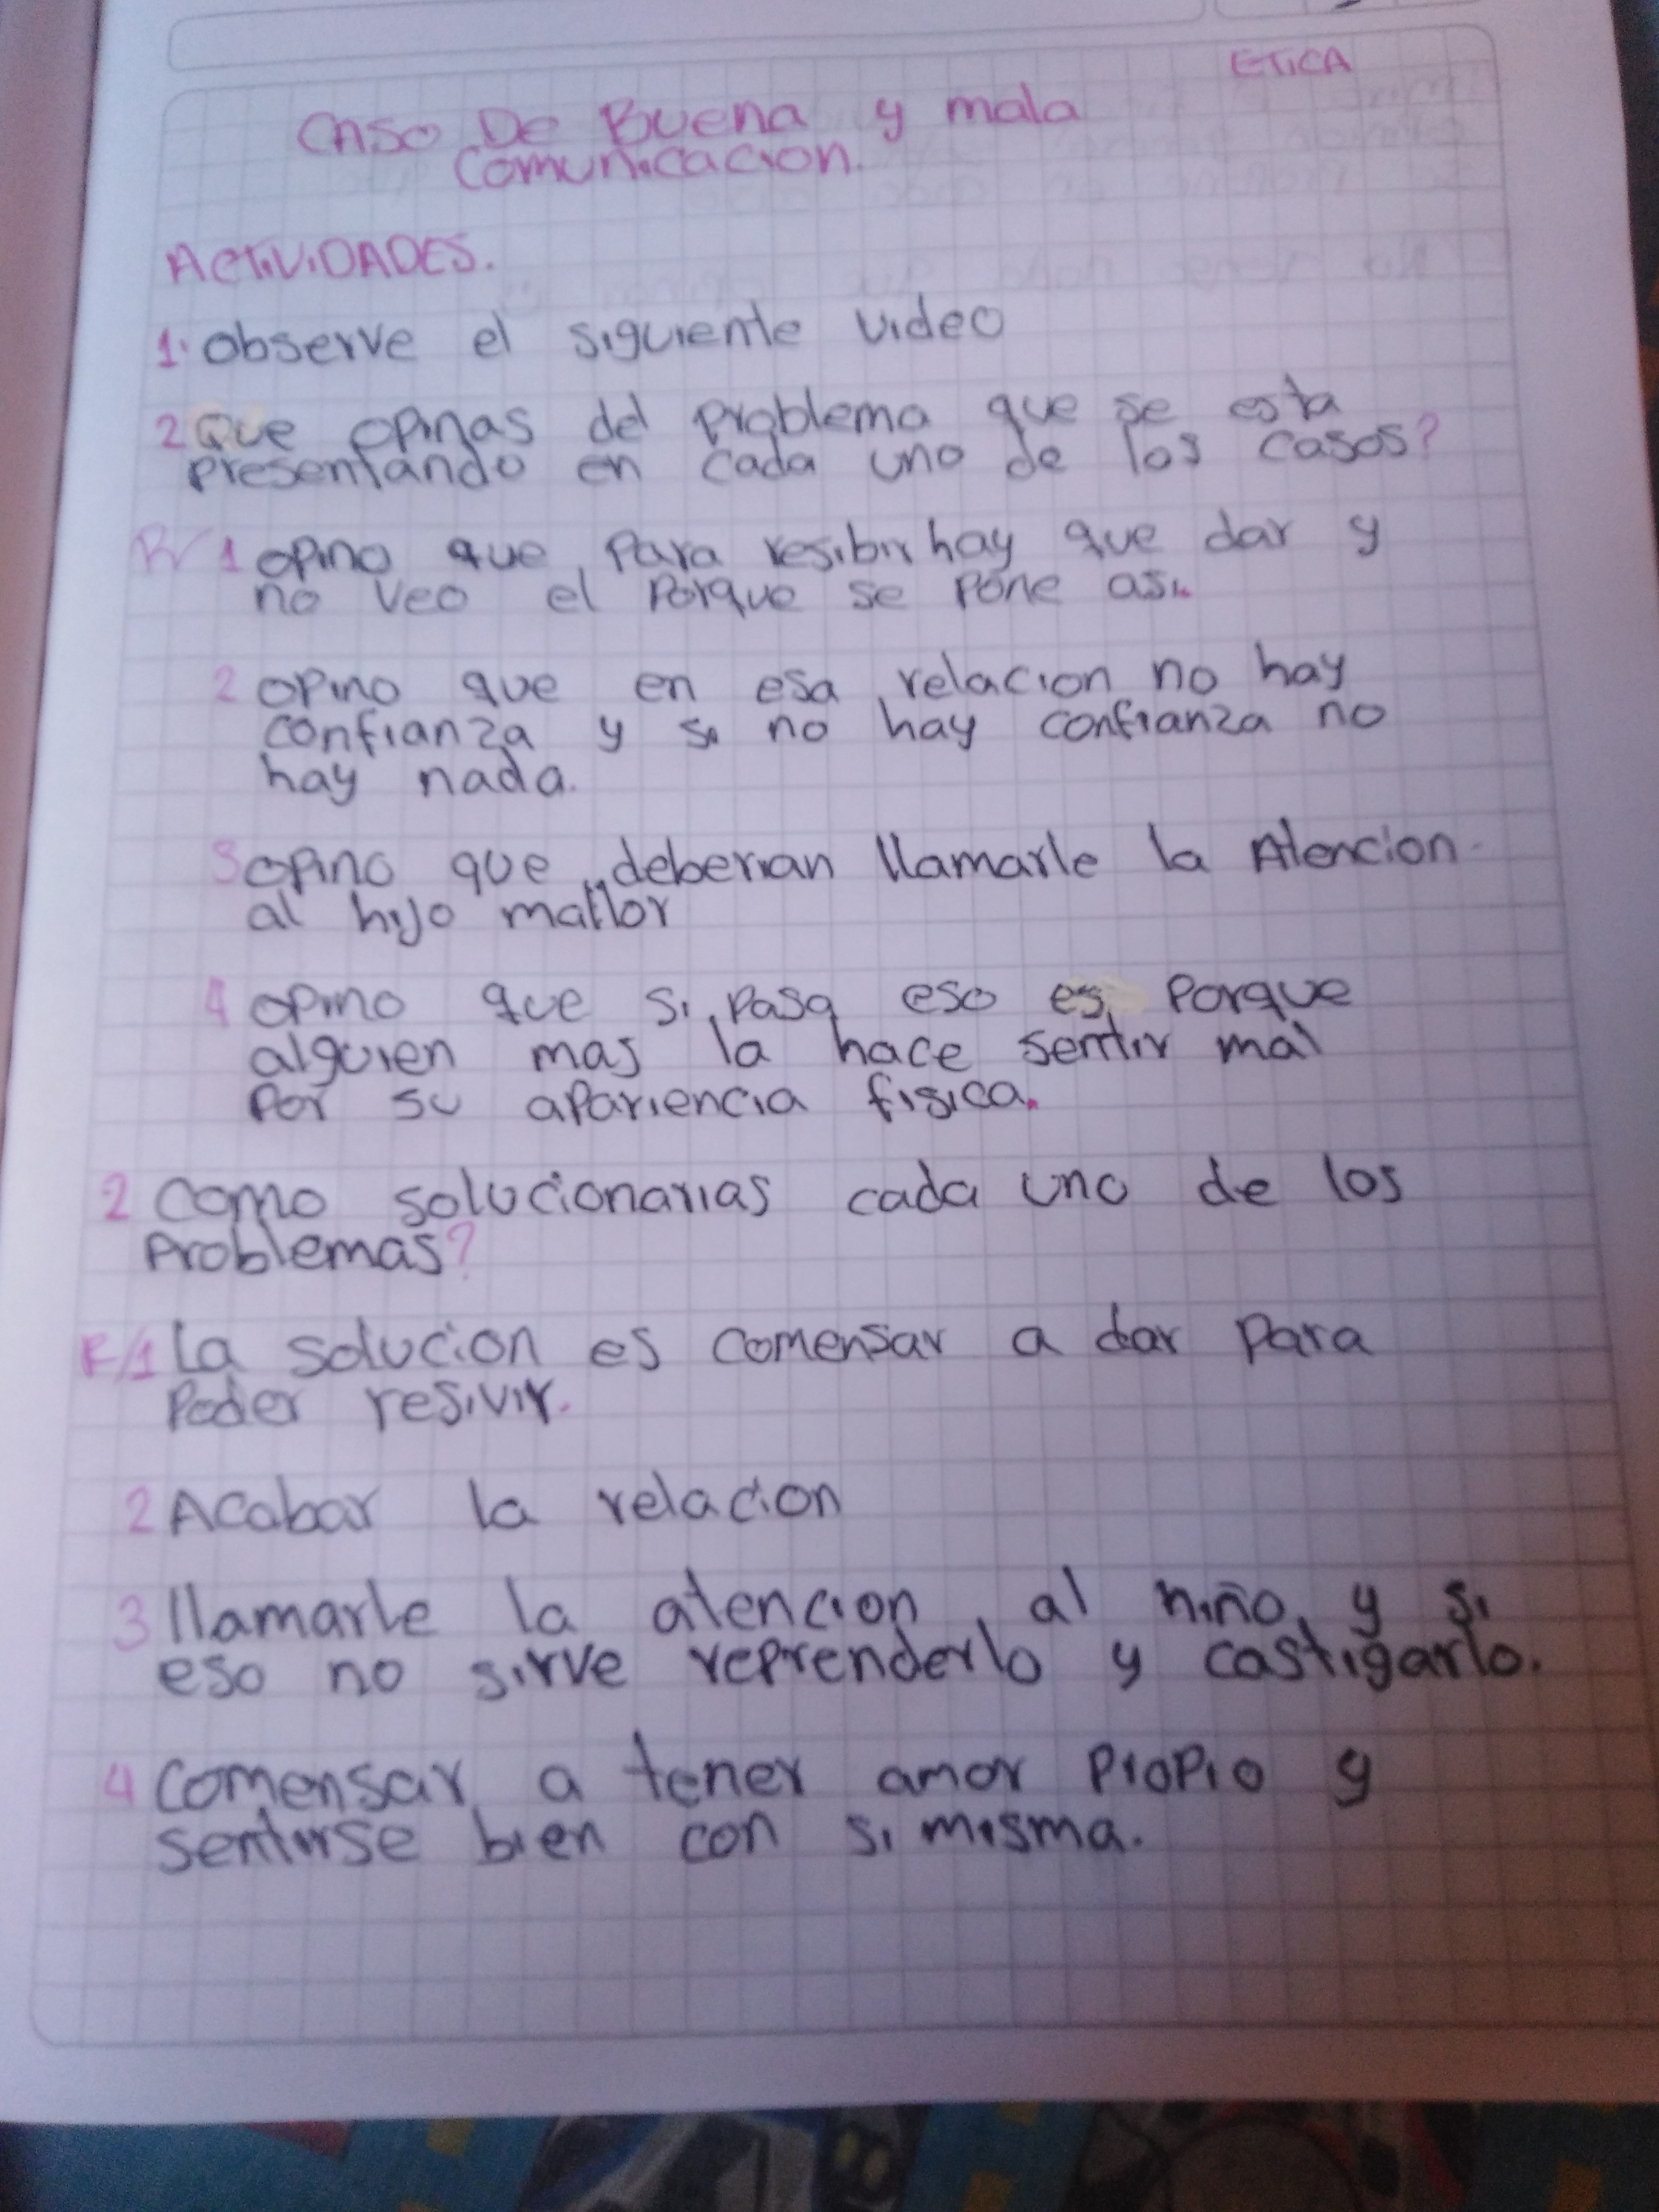 ETICA
CASO De Buena y mala
comunicacion.
ACTIVIDADES.
1. Observe el siguiente video
2 Que opinas del problema que se esta
presentando en cada uno de los casos?
R/ 1 opino que para resibir hay que dar y
no veo el porque se pone asi.
2 opino que en esa relacion no hay
confianza y si no hay confianza no
hay nada.
3 opino que deberian llamarle la Atencion
al hijo mallor
4 opino que si pasa eso es porque
alguien mas la hace sentir mal
por su apariencia fisica.
2 como solucionarias cada uno de los
problemas?
R/1 La solucion es comensar a dar para
poder resivir.
2 Acabar la relacion
3 llamarle la atencion al niño y si
eso no sirve reprenderlo y castigarlo.
4 comensar a tener amor propio y
sentirse bien con si misma.